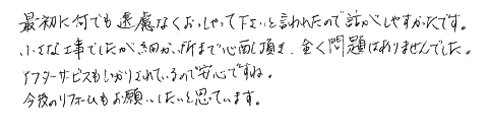 最初に何でも遠慮なくおっしゃって下さいと言われたので話がしやすかったです。
小さな工事でしたが細かい所まで心配し頂き、全く問題はありませんでした。
アフターサービスもしっかりされているので安心ですね。
今後のリフォームもお願いしたいと思ています。